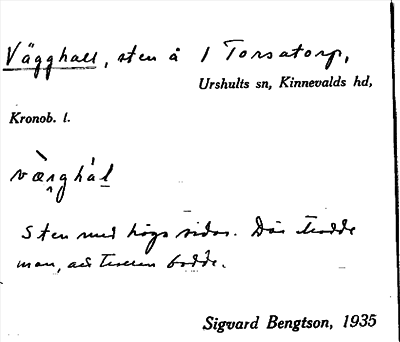 Vägghall, sten å 1 Torsatorp,
Urshults sn, Kinnevalds hd,
Kronob. l.
sten med höga sidor. Där trodde
man, att bodde.
Sigvard Bengtson, 1935